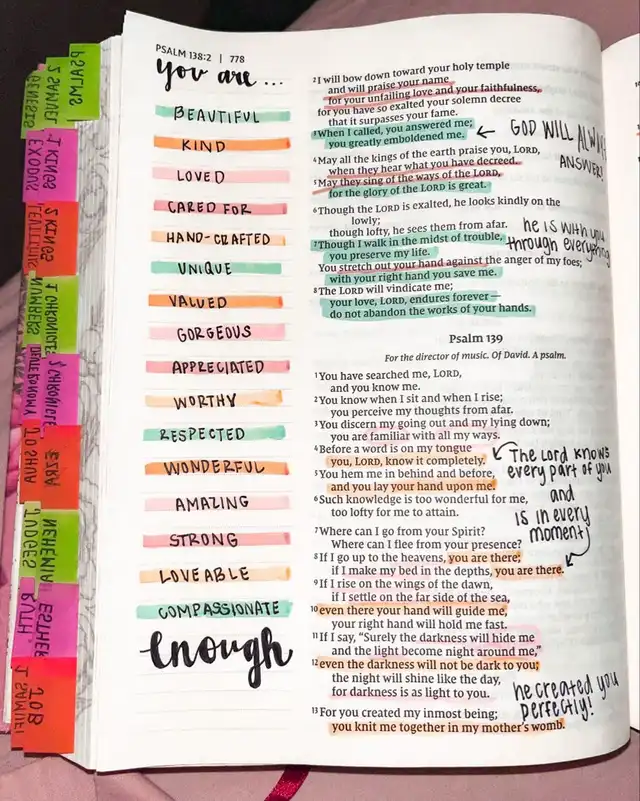 PSALMS
2 SAMUEL
GENESIS
1 KINGS
EXODUS
2 KINGS
LEVITICUS
NUMBERS
EZRA
JOSHUA
NEHEMIAH
JUDGES
ESTHER
RUTH
JOB
1 SAMUEL
PSALM 138:2 | 778
you are ...
BEAUTIFUL
KIND
LOVED
CARED FOR
HAND-CRAFTED
UNIQUE
VALUED
GORGEOUS
APPRECIATED
WORTHY
RESPECTED
WONDERFUL
AMAZING
STRONG
LOVEABLE
COMPASSIONATE
Enough
2 I will bow down toward your holy temple
and will praise your name
for your unfailing love and your faithfulness,
for you have so exalted your solemn decree
that it surpasses your fame.
3 When I called, you answered me;
you greatly emboldened me.
GOD WILL ALWAYS
ANSWER!
4 May all the kings of the earth praise you, LORD,
when they hear what you have decreed.
5 May they sing of the ways of the LORD,
for the glory of the LORD is great.
6 Though the LORD is exalted, he looks kindly on the
lowly;
though lofty, he sees them from afar.
7 Though I walk in the midst of trouble,
you preserve my life.
You stretch out your hand against the anger of my foes;
with your right hand you save me.
he is with you
through everything
8 The LORD will vindicate me;
your love, LORD, endures forever—
do not abandon the works of your hands.
Psalm 139
For the director of music. Of David. A psalm.
1 You have searched me, LORD,
and you know me.
2 You know when I sit and when I rise;
you perceive my thoughts from afar.
3 You discern my going out and my lying down;
you are familiar with all my ways.
4 Before a word is on my tongue
you, LORD, know it completely.
5 You hem me in behind and before,
and you lay your hand upon me.
6 Such knowledge is too wonderful for me,
too lofty for me to attain.
The Lord knows
every part of you
and
is in every
moment
7 Where can I go from your Spirit?
Where can I flee from your presence?
8 If I go up to the heavens, you are there;
if I make my bed in the depths, you are there.
9 If I rise on the wings of the dawn,
if I settle on the far side of the sea,
10 even there your hand will guide me,
your right hand will hold me fast.
11 If I say, “Surely the darkness will hide me
and the light become night around me,”
12 even the darkness will not be dark to you;
the night will shine like the day,
for darkness is as light to you.
13 For you created my inmost being;
you knit me together in my mother's womb.
he created you
perfectly!